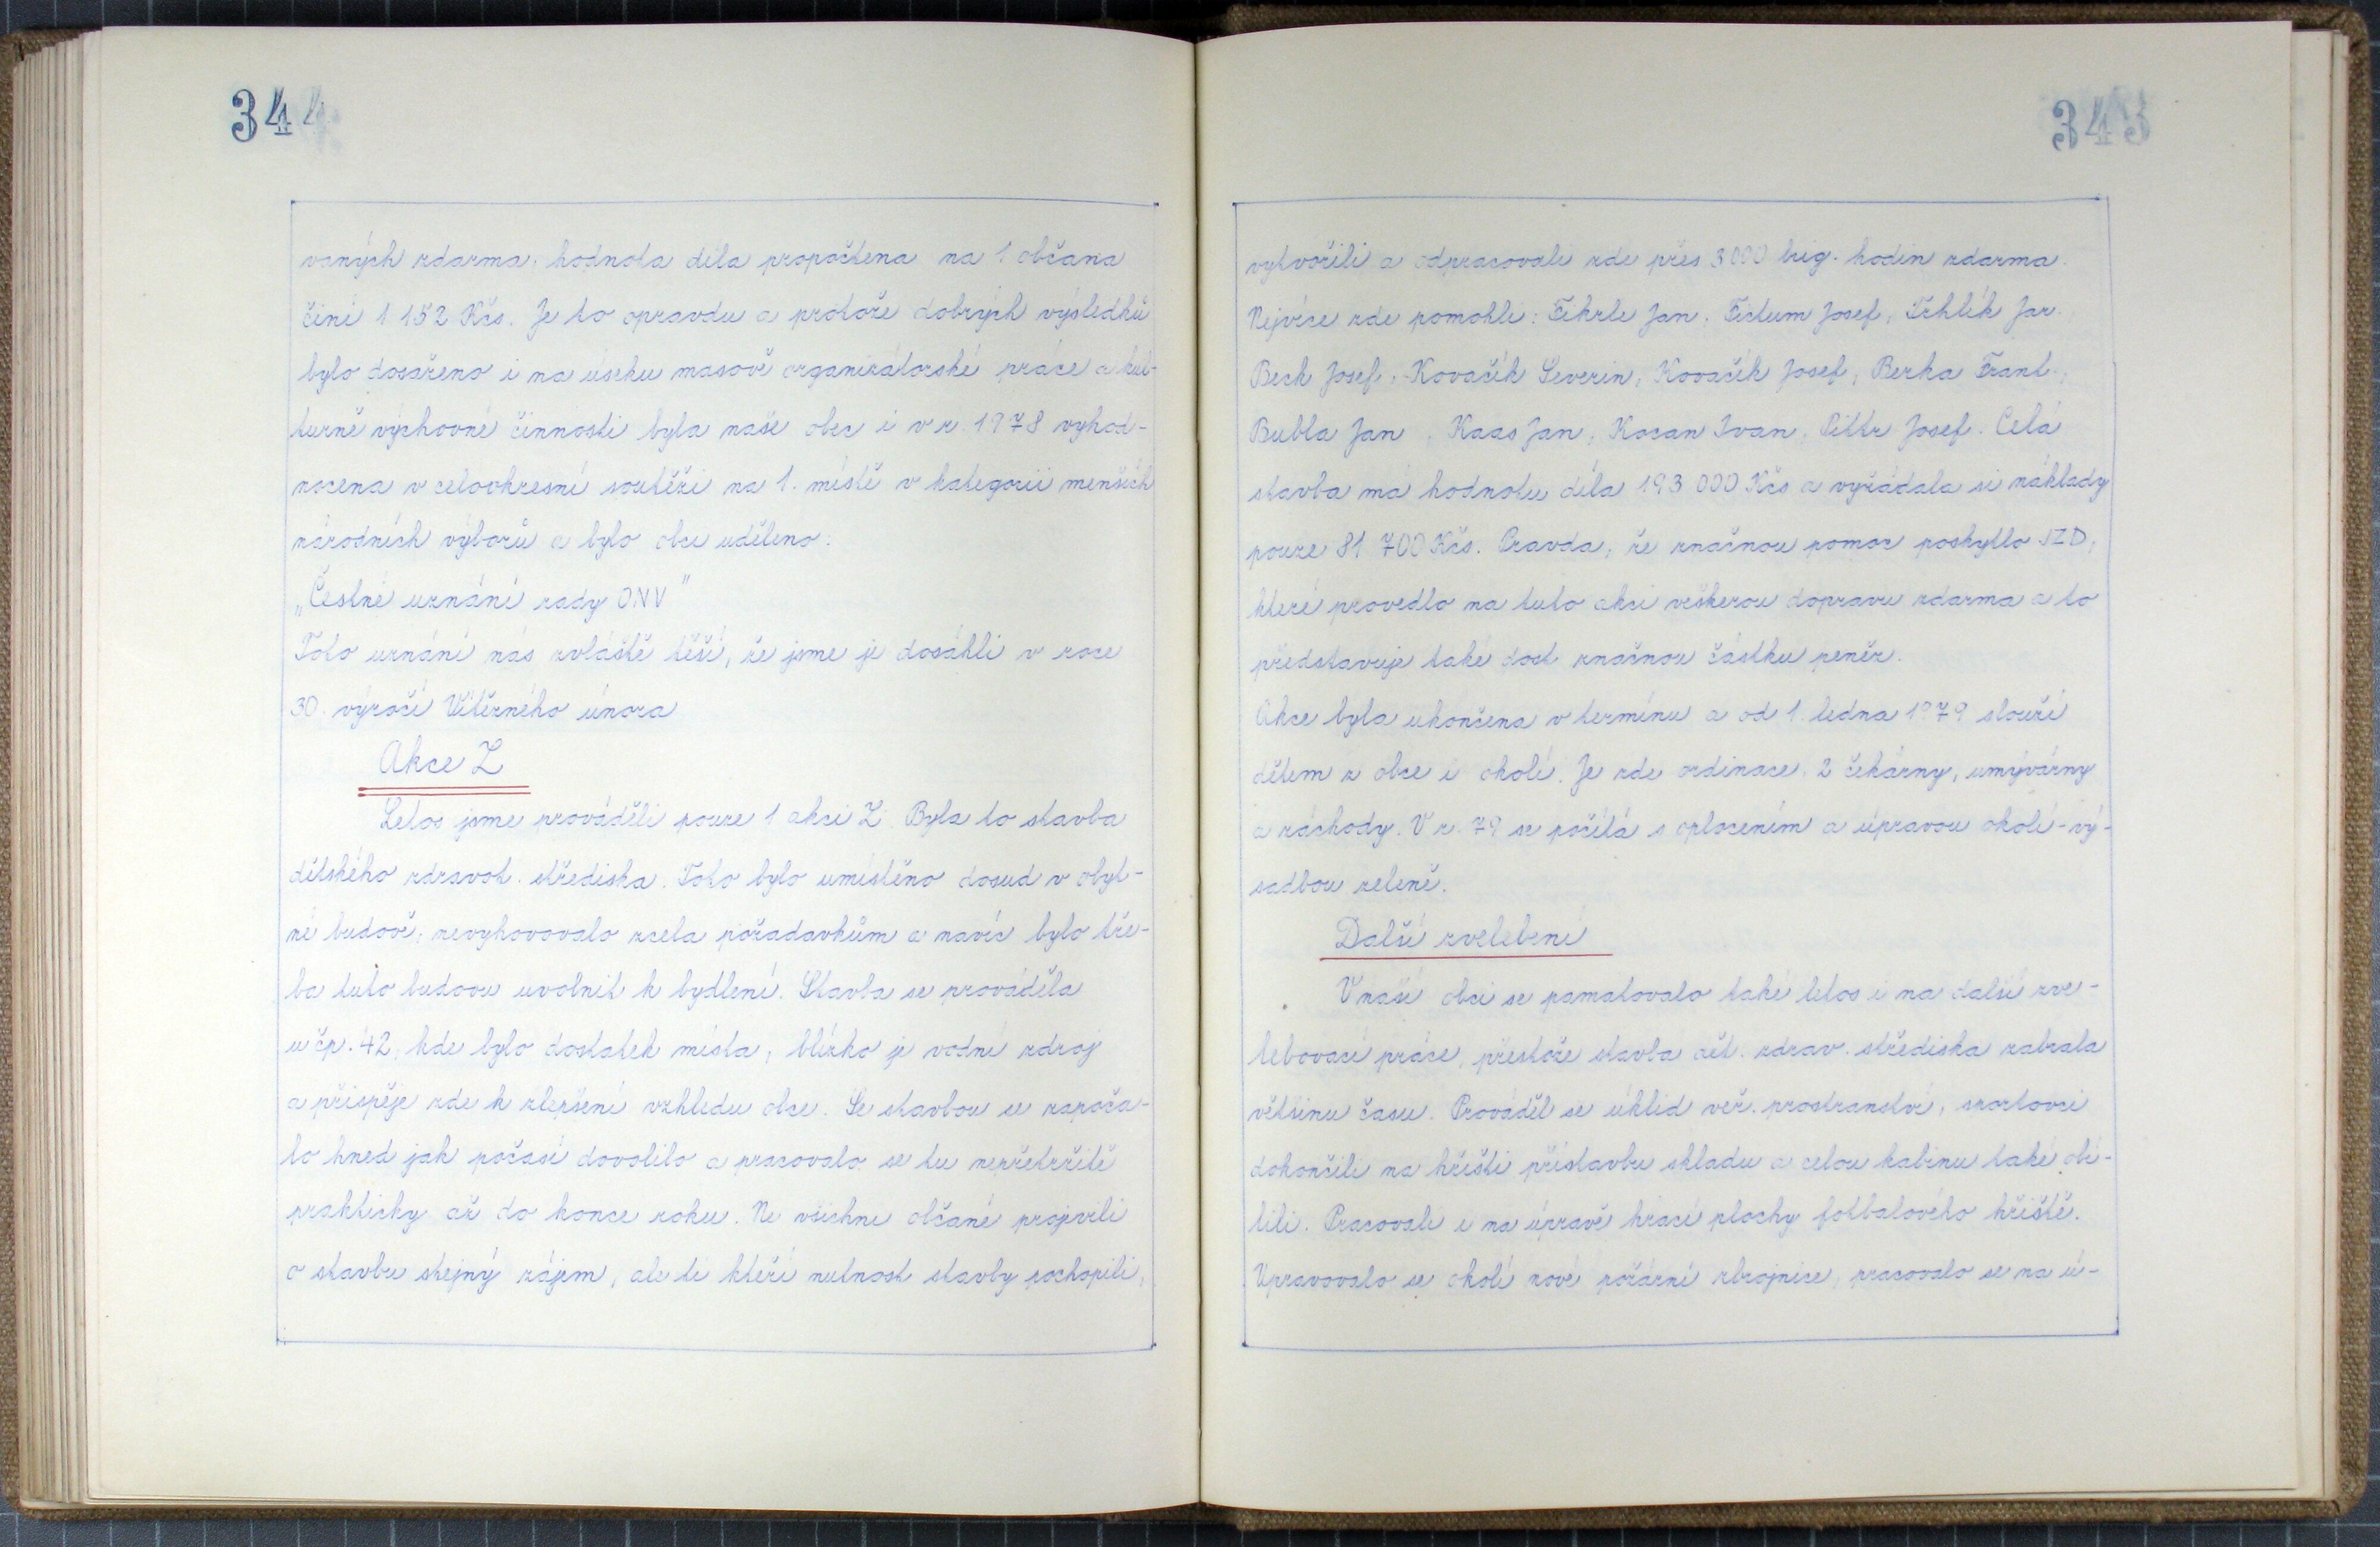 344
vaných zdarma, hodnota díla propočtena na 1 občana
činí 1 152 Kčs. Je to opravdu a protože dobrých výsledků
bylo dosaženo i na úseku masově organizátorské práce a kul-
turně výchovné činnosti byla naše obec i v r. 1978 vyhod-
nocena v celookresní soutěži na 1. místě v kategorii menších
národních výborů a bylo obci uděleno:
„Čestné uznání rady ONV"
Toto uznání nás zvláště těší, že jsme je dosáhli v roce
30. výročí Vítězného února
Akce Z
Letos jsme prováděli pouze 1 akci Z. Byla to stavba
dětského zdravot. střediska. Toto bylo umístěno dosud v obyt-
né budově, nevyhovovalo zcela požadavkům a navíc bylo tře-
ba tuto budovu uvolnit k bydlení. Stavba se prováděla
u čp. 42, kde bylo dostatek místa, blízko je vodní zdroj
a přispěje zde k zlepšení vzhledu obce. Se stavbou se započa-
lo hned jak počasí dovolilo a pracovalo se tu nepřetržitě
prakticky až do konce roku. Ne všichni občané projevili
o stavbu stejný zájem, ale ti kteří nutnost stavby pochopili,
343
vytvořili a odpracovali zde přes 3 000 brig. hodin zdarma.
Nejvíce zde pomohli: Fikrle Jan, Fictum Josef, Trhlík Jar.
Bech Josef, Kovačík Severin, Kovačík Josef, Berka Frant.,
Bubla Jan, Kaas Jan, Kocan Ivan, Pittr Josef. Celá
stavba má hodnotu díla 193 000 Kčs a vyžádala si náklady
pouze 81 700 Kčs. Pravda, že značnou pomoc poskytlo JZD,
které provedlo na tuto akci veškerou dopravu zdarma a to
představuje také dost značnou částku peněz.
Akce byla ukončena v termínu a od 1. ledna 1979 slouží
dětem z obce i okolí. Je zde ordinace, 2 čekárny, umývárny
a záchody. V r. 79 se počítá s oplocením a úpravou okolí - vý-
sadbou zeleně.
Další zvelebení
V naší obci se pamatovalo také letos i na další zve-
lebovací práce, přestože stavba dět. zdrav. střediska zabrala
většinu času. Prováděl se úklid veř. prostranství, sportovci
dokončili na hřišti přístavbu skladu a celou kabinu také obí-
lili. Pracovali i na úpravě hrací plochy fotbalového hřiště.
Upravovalo se okolí nové požární zbrojnice, pracovalo se na ú-